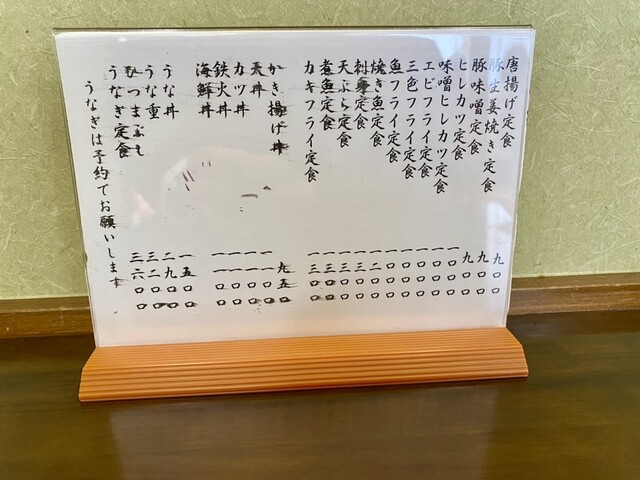 唐揚げ定食 九〇〇
豚生姜焼き定食 九〇〇
豚味噌定食 九〇〇
ヒレカツ定食 一〇〇〇
味噌ヒレカツ定食 一〇〇〇
エビフライ定食 一〇〇〇
三色フライ定食 一〇〇〇
魚フライ定食 一〇〇〇
焼き魚定食 一二〇〇
刺身定食 一三〇〇
天ぷら定食 一三〇〇
煮魚定食 一三〇〇
カキフライ定食 一三〇〇
かき揚げ丼 九五〇
天丼 一一〇〇
カツ丼 一一〇〇
鉄火丼 一一〇〇
海鮮丼 一一〇〇
うな丼 一五〇〇
うな重 二九〇〇
ひつまぶし 三二〇〇
うなぎ定食 三六〇〇
うなぎは予約でお願いします